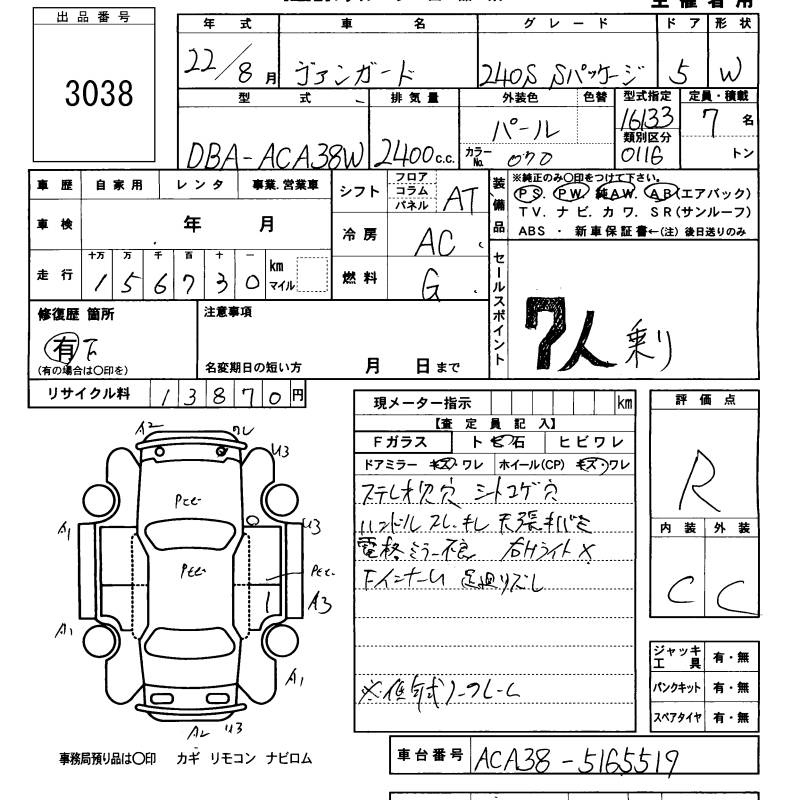 出品番号
3038
年式 車名 グレード ドア 形状
22/8月 ヴァンガード 240S Sパッケージ 5 W
型式 排気量 外装色 色替 型式指定 定員・積載
16133
パール 7名
類別区分
DBA-ACA38W 2400c.c. カラーNo. 070 0116 トン
車歴 自家用 レンタ 事業.営業車
シフト フロア コラム パネル AT
装備品 ※純正のみ〇印をつけて下さい。
PS. PW. 純AW. AB(エアバック)
TV. ナビ. カワ. SR(サンルーフ)
ABS ・ 新車保証書←(注) 後日送りのみ
車検 年 月
冷房 AC
走行 十万 万 千 百 十 一
156730 km マイル
燃料 G
セールスポイント
7人乗り
修復歴 箇所
有
(有の場合は〇印を)
注意事項
名変期日の短い方 月 日まで
リサイクル料 13870円
現メーター指示 km
【査定員記入】
Fガラス ト ビ 石 ヒビワレ
ドアミラー キズ・ワレ ホイール(CP) キズ・ワレ
ステレオ欠穴 シートコゲ穴
ハンドルスレ・キレ 天張キバミ
電格ミラー不良 右Hライト×
FインナーL 足廻りズレ
評価点
R
内装 外装
C C
A2
U3
A1
U3
A3
A1
A1
A2 U3
ジャッキ 工具 有・無
パンクキット 有・無
スペアタイヤ 有・無
事務局預り品は〇印 カギ リモコン ナビロム
車台番号 ACA38-5165519